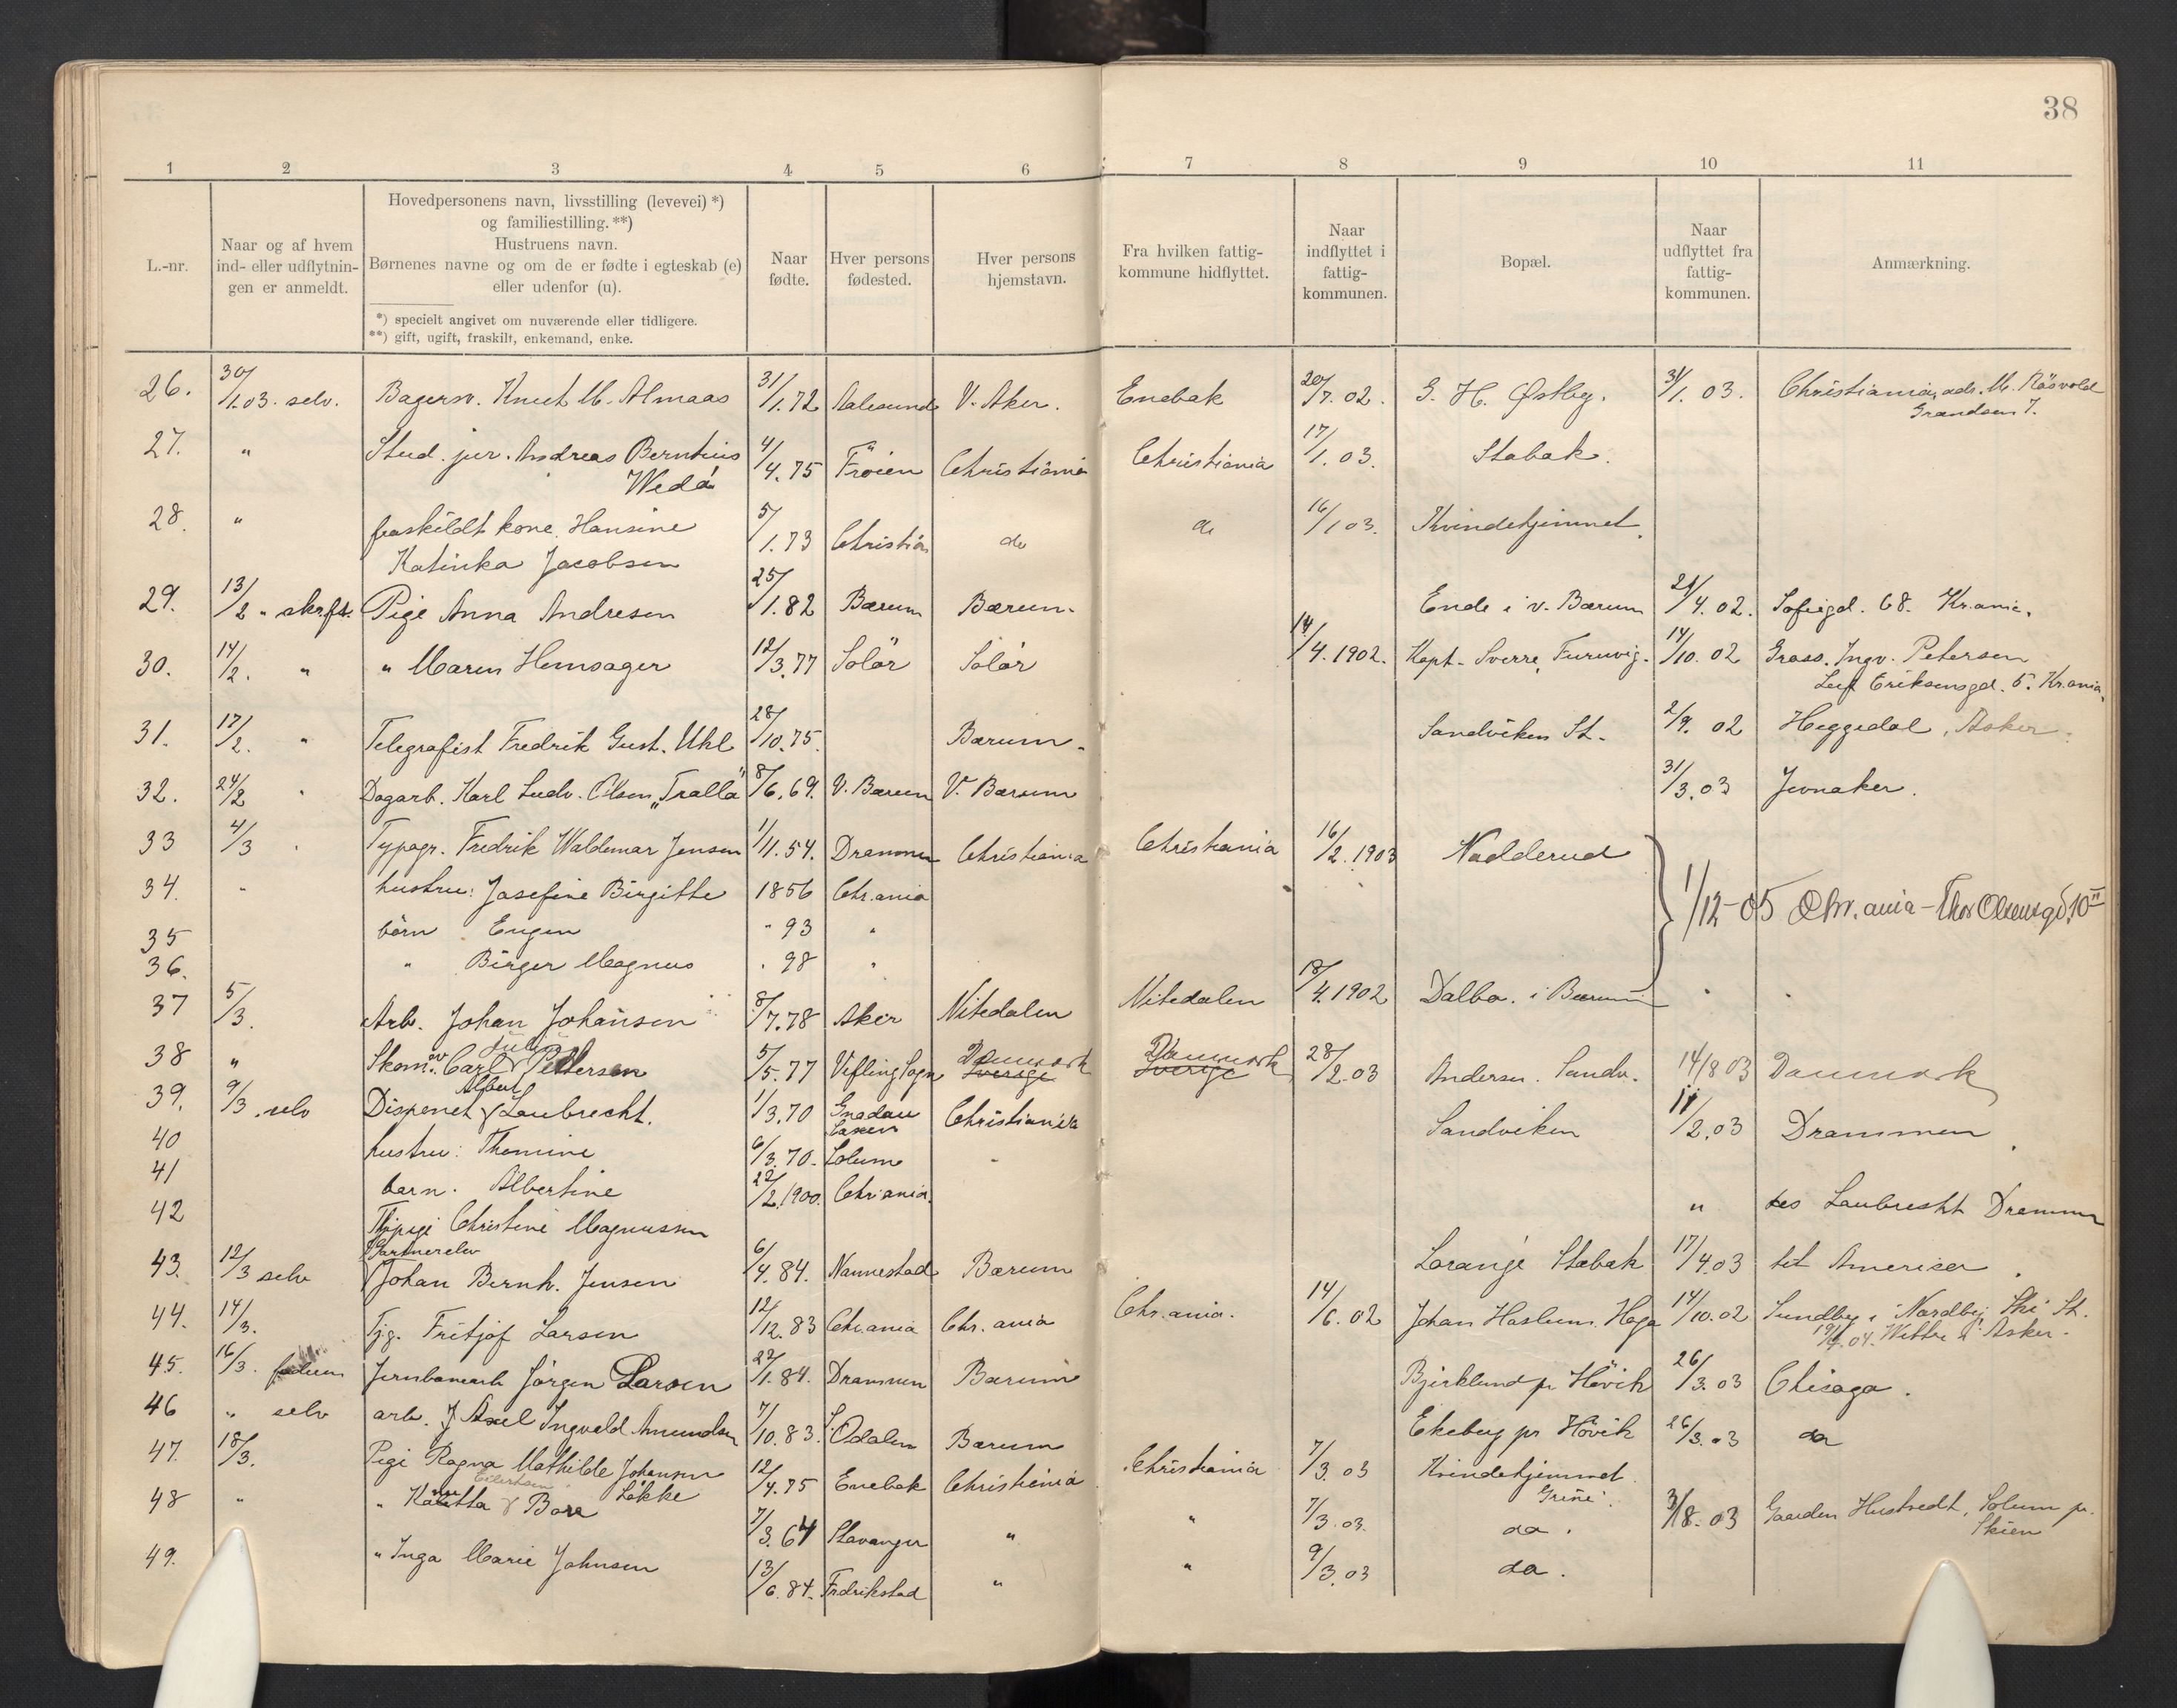 38
1 2 3 4 5 6 7 8 9 10 11
L.-nr.
Naar og af hvem
ind- eller udflytnin-
gen er anmeldt.
Hovedpersonens navn, livsstilling (levevei) *)
og familiestilling. **)
Hustruens navn.
Børnenes navne og om de er fødte i egteskab (e)
eller udenfor (u).
*) specielt angivet om nuværende eller tidligere.
**) gift, ugift, fraskilt, enkemand, enke.
Naar
fødte.
Hver persons
fødested.
Hver persons
hjemstavn.
Fra hvilken fattig-
kommune hidflyttet.
Naar
indflyttet i
fattig-
kommunen.
Bopæl.
Naar
udflyttet fra
fattig-
kommunen.
Anmærkning.
26. 30/1.03. selv. Bagersv. Knut M. Almaas 31/1.72 Aalesund V. Aker. Enebak 20/7.02. G. H. Østby. 31/1.03. Christiania, adr. M. Røsvold
Grændsen 7.
27. " Stud. jur. Andreas Berntius 4/4.75 Frøien Christiania Christiania 17/1.03. Stabak.
Wedø
28. " fraskildt kone Hansine 5/1.73 Christia do do 16/1 03. Kvindehjemmet.
Katinka Jacobsen
29. 13/2 " skrftl. Pige Anna Andresen 25/1.82 Bærum Bærum. Ende i v. Bærum 21/4.02. Sofiegd. 68. Kr.ania.
30. 14/2. " " Maren Hemsager 12/3.77 Solør Solør 14/4.1902. Kapt. Sverre, Furuvig. 14/10.02 Gross. Ingv. Petersen
Leif Eriksensgd. 5. Kr.ania.
31. 17/2. " Telegrafist Fredrik Gust. Uhl 28/10.75. Bærum. Sandviken St. 2/9. 02 Heggedal, Asker.
32. 24/2 " Dagarb. Karl Ludv. Olsen "Tralla" 8/6.69. V. Bærum V. Bærum 31/3.03 Jevnaker.
33 4/3 " Typogr. Fredrik Waldemar Jensen 1/11.54. Drammen Christiania Christiania 16/2.1903 Nadderud
34. " hustru: Josefine Birgitte 1856 Chr.ania 1/12-05 Chr.ania - Thor Olsensgd. 10 II
35 børn Eugen " 93 "
36. " Birger Magnus " 98 "
37 5/3. Arb. Johan Johansen 8/7.78 Aker Nitedalen Nitedalen 18/4.1902 Dalbo. i Bærum
38 " Skom.sv. Carl Julius Pedersen 5/5.77 Vefling Sogn Sverige Danmark Sverige Danmark 28/2.03 Andersen. Sandv. 14/8 03 Danmark
39. 9/3. selv Disponent Albert Laubrecht. 1/3.70 Gnadau Saxen Christiania Sandviken 11/2.03 Drammen
40 hustru: Thomine 6/3.70. Solum "
41 barn. Albertine 22/2.1900. Chr.ania.
42 Tjpige Christine Magnussen " hos Laubrecht Drammen
43. 12/3 selv Gartnerelev
Johan Bernh. Jensen 6/4.84. Nannestad Bærum Lorange Stabak 17/4.03 til Amerika
44. 14/3. Tjg. Fritjof Larsen 12/12.83 Chr.ania Chr.ania Chr.ania. 14/6.02 Johan Haslum. Haga 14/10.02 Sundby i Nordby, Ski St.
19/4.04. Wettre i Asker.
45. 16/3. faderen Jernbanearb Jørgen Larsen 22/1.84. Drammen Bærum Bjerklund pr Høvik 26/3.03 Chicago.
46 " selv arb. J Axel Ingvald Amundsen 7/10.83. S. Odalen Bærum Ekeberg pr Høvik 26/3.03 do
47. 18/3. Pige Ragna Mathilde Johansen 12/4.75 Enebak Christiania Christiania 7/3.03 Kvindehjemmet
Løkke Grine.
48 " " Eilertsen Bore 7/3.64 Stavanger " " 7/3.03. do. 31/8.03 Gaarden Hustvedt, Solum pr.
Skien
49. " Inga Marie Johnsen 13/6.84. Fredrikstad " " 9/3.03 do.